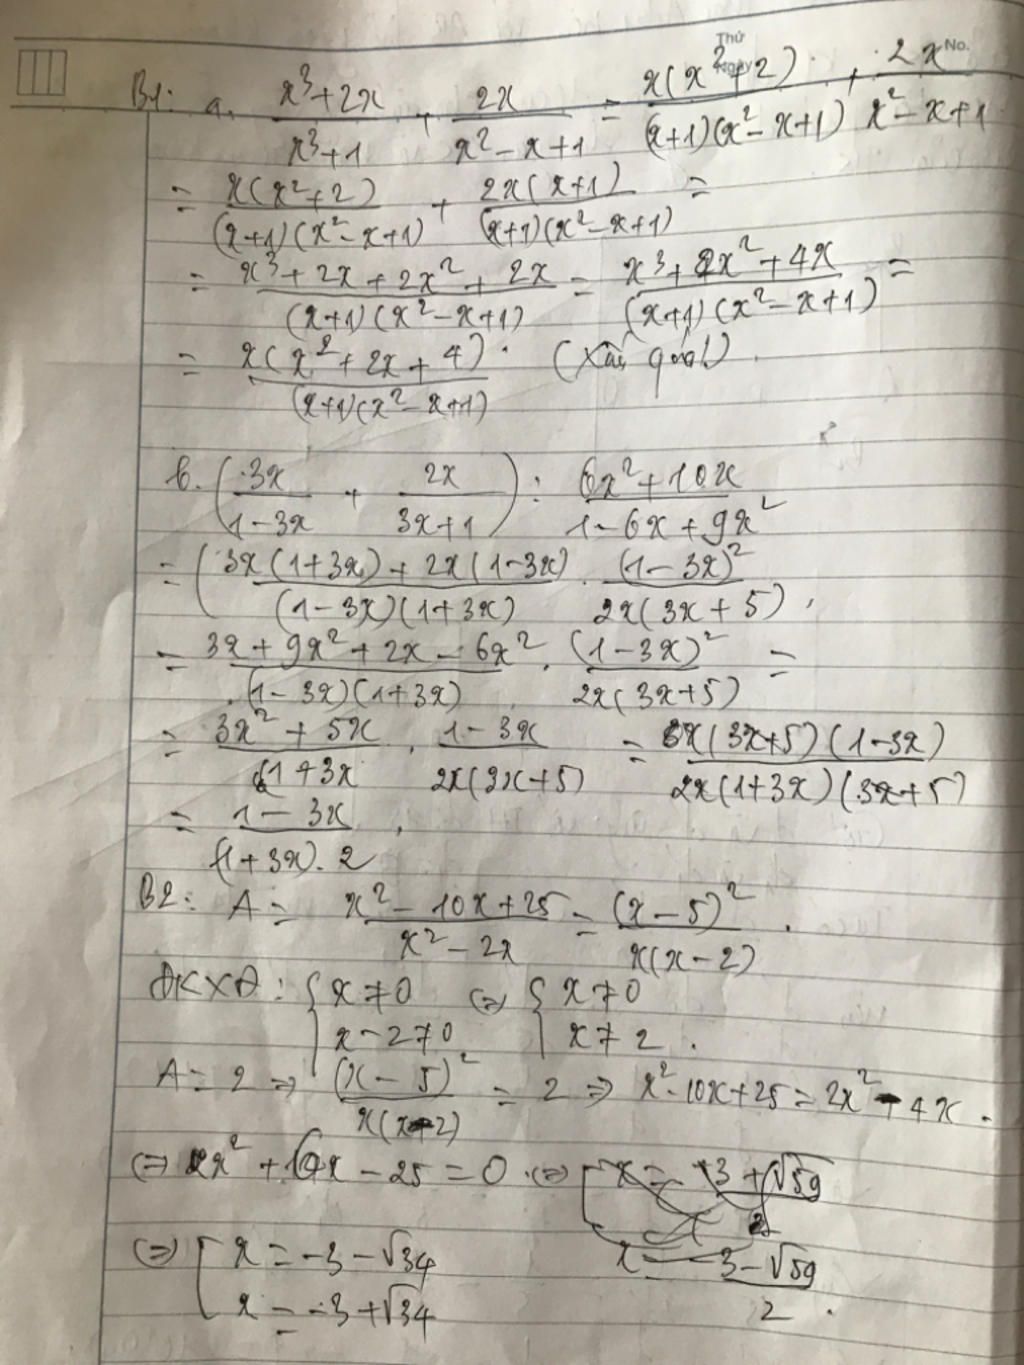 Thứ
Ngày No.
B1: a. (x³+2x)/(x³+1) + 2x/(x²-x+1) = x(x²+2)/((x+1)(x²-x+1)) + 2x/(x²-x+1)
= x(x²+2)/((x+1)(x²-x+1)) + 2x(x+1)/((x+1)(x²-x+1)) =
= (x³+2x+2x²+2x)/((x+1)(x²-x+1)) = (x³+2x²+4x)/((x+1)(x²-x+1)) =
= x(x²+2x+4)/((x+1)(x²-x+1)). (Xấu quá!).
b. (3x/(1-3x) + 2x/(3x+1)) : (6x²+10x)/(1-6x+9x²)
= (3x(1+3x)+2x(1-3x))/((1-3x)(1+3x)) . (1-3x)²/(2x(3x+5)),
= (3x+9x²+2x-6x²)/((1-3x)(1+3x)) . (1-3x)²/(2x(3x+5)) =
= (3x²+5x)/(1+3x) . (1-3x)/(2x(3x+5)) = x(3x+5)(1-3x)/(2x(1+3x)(3x+5))
= (1-3x)/((1+3x).2).
B2: A = (x²-10x+25)/(x²-2x) = (x-5)²/(x(x-2)).
ĐKXĐ: { x≠0 ⇔ { x≠0
x-2≠0 x≠2.
A = 2 ⇒ (x-5)²/(x(x-2)) = 2 ⇒ x²-10x+25 = 2x²-4x.
⇔ x²+6x-25=0. ⇔ [ x = -3+√59/2
x = -3-√59/2.
⇔ [ x = -3-√34
x = -3+√34